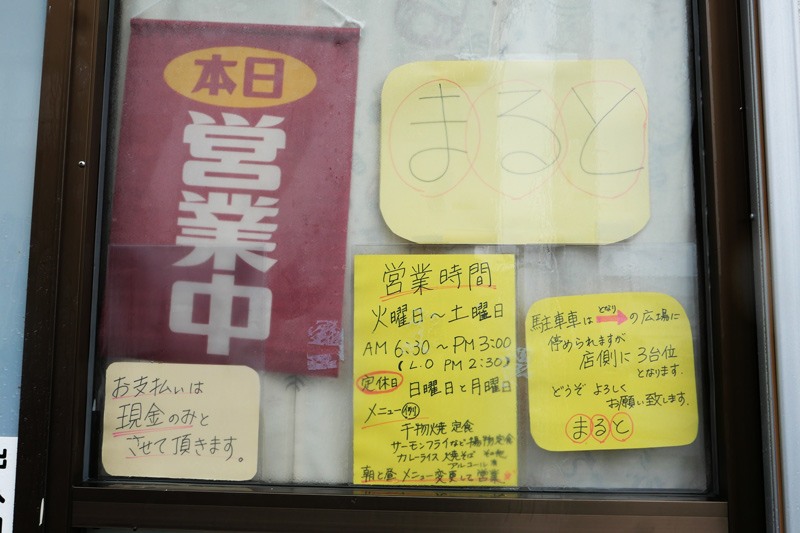 本日
営業中
まると
営業時間
火曜日～土曜日
AM 6:30～PM 3:00
(L.O PM 2:30)
定休日 日曜日と月曜日
メニュー 例
干物焼定食
サーモンフライなど揚物定食
カレーライス 焼そば その他
アルコール有
朝と昼 メニュー変更して営業
お支払いは
現金のみと
させて頂きます。
駐車車は となり の広場に
停められますが
店側に3台位
となります。
どうぞ よろしく
お願い致します。
まると